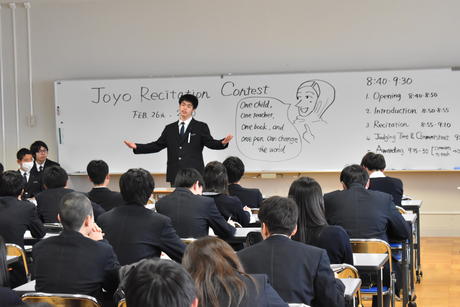 Joyo Recitation Contest
FEB. 26th
One child,
One teacher,
One book, and
One pen can change
the world
8:40-9:30
1. Opening 8:40-8:50
2. Introduction 8:50-8:55
3. Recitation 8:55-9:10
4. Judging Time &
5. Awarding 9:15-9:30